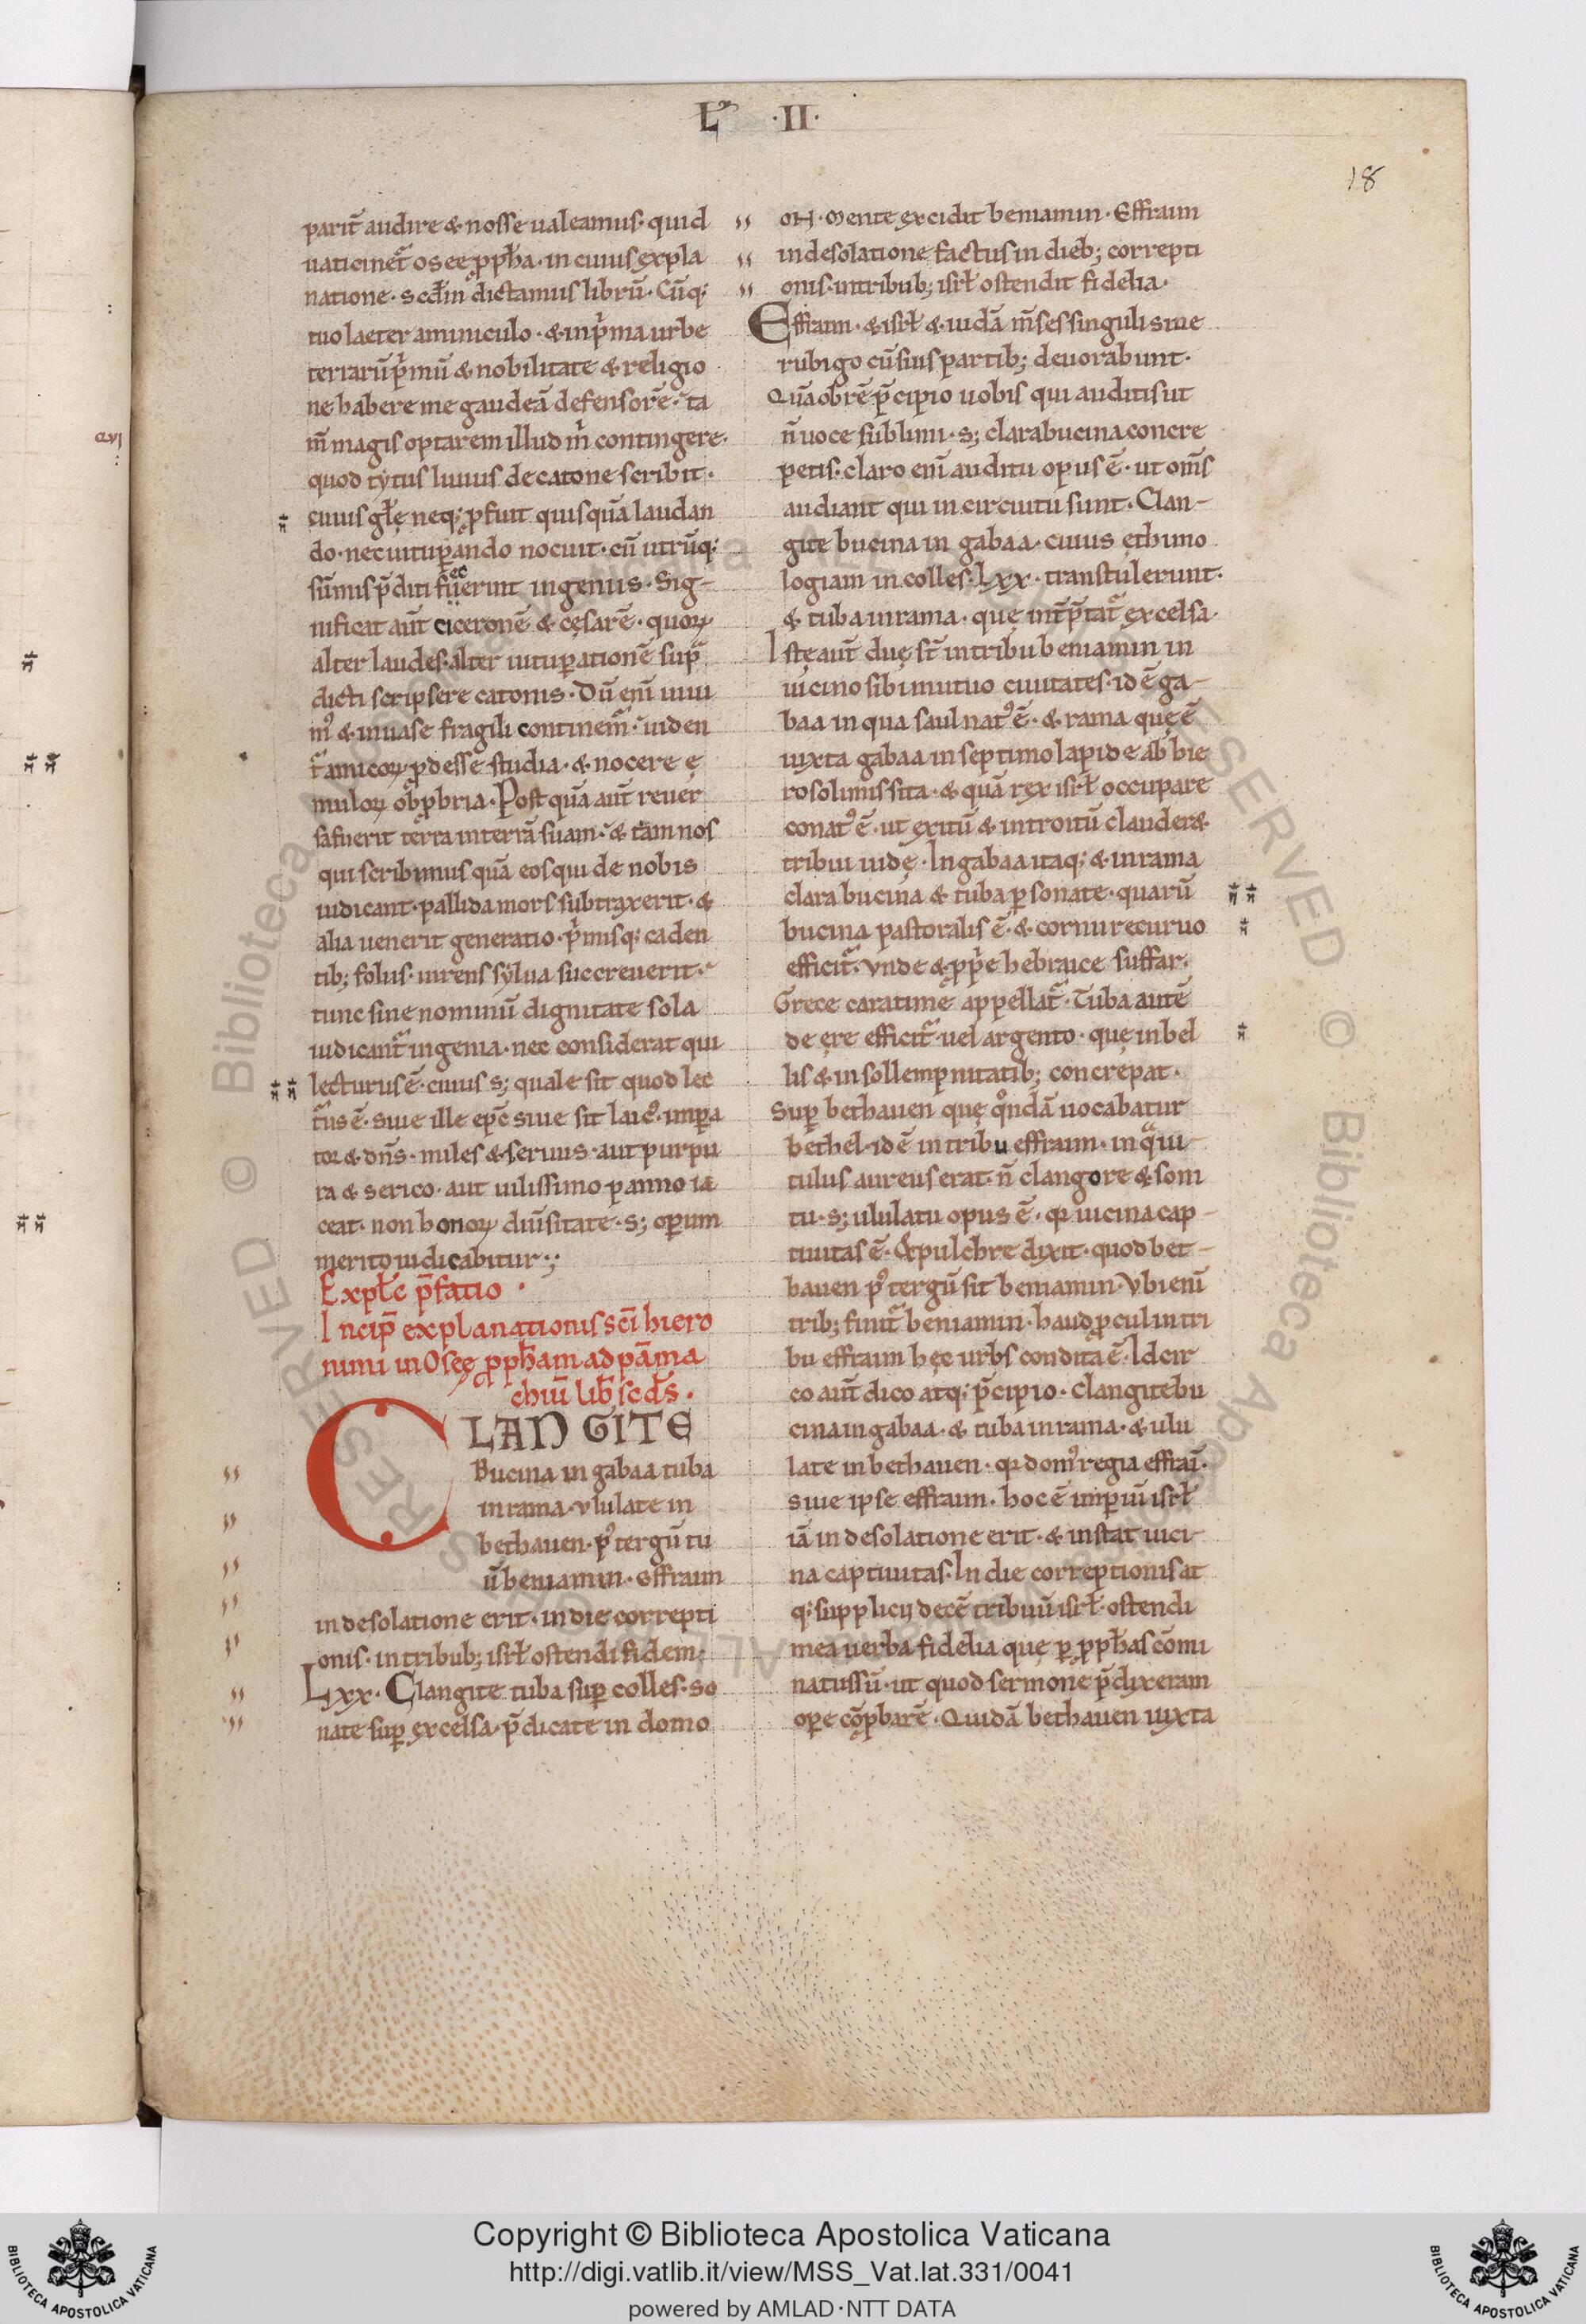 Lͫ ·II·
18
parit̄ audire & nosse ualeamus· quid
uaticinet᷑ osee ꝓpħa· in cuius expla
natione· scd̄m dictamus librū· Cūq;
tuo laeter aminiculo· & inp̍ma urbe
terrarū p̍mū & nobilitate & religio
ne habere me gaudeā defensorē· ta
m̄ magis optarem illud m̍ contingere·
quod tytus liuius de catone scribit·
cuius głę neq; ꝓfuit quisquā laudan
do· nec uituꝑando nocuit· cū utrūq;
sūmis p̄diti fuerint ingeniis· Sig-
nificat aūt ciceronē & cęsarē· quoꝝ
alter laudes· alter uituꝑationē sup᷑
dicti scripsere catonis· Dū enī uiui
mꝰ & inuase fragili continem᷑· uiden
t᷑ amicoꝝ ꝓdesse studia· & nocere ę
muloꝝ obꝓbria· Post quā aūt reuer
sa fuerit terra in terrā suam· & tam nos
qui scribimus quā eos qui de nobis
iudicant· pallida mors subtraxerit· &
alia uenerit generatio· p̍misq; caden
tib; foliis· uirens sylua succreuerit·
tunc sine nominū dignitate sola
iudicant᷑ ingenia· nec considerat qui
lecturus ē· cuius s; quale sit quod lec
t᷑us ē· siue ille ep̄c siue sit laicꝰ· imꝑa
tor & dn̄s· miles & seruus· aut purpu
ra & serico· aut uilissimo panno ia
ceat· non honoꝝ diūsitate· s; oꝑum
merito iudicabitur·;
Explc̄ p̄fatio·
Incip̄ explanationis sc̄i hiero
nimi in Oseę ꝓpħam ad pāma
chiū lib̄ scd̄s·
CLANGITE
Bucina in gabaa tuba
in rama· ululate in
bethauen· pꝰ tergū tu
ū beniamin· effraim
in desolatione erit· in die correpti
onis· in tribub; isrł ostendi fidem·
Lxx· Clangite tuba suꝑ colles· so
nate suꝑ excelsa· p̄dicate in domo
on· Mente excidit beniamin· Effraim
in desolatione factus in dieb; correpti
onis· in tribub; isrł ostendit fidelia·
Effraim· & isrł & iudā m̄ses singuli sine
rubigo cū suis partib; deuorabunt·
Quāobrē p̄cipio uobis qui auditis ut
n̄ uoce sublimi· s; clara bucina concre
petis· claro enī auditu opus ē· ut om̄s
audiant qui in circuitu sunt· Clan-
gite bucina in gabaa· cuius ęthimo
logiam in colles· Lxx· transtulerunt·
& tuba in rama· quę int̄p̄tat᷑ excelsa·
Istę aūt duę st̄ in tribu beniamin in
uicino sibi mutuo ciuitates· id ē ga-
baa in qua saul natꝰ ē· & rama quę ē
iuxta gabaa in septimo lapide ab hie
rosolimis sita· & quā rex isrł occupare
conatꝰ ē· ut exitū & introitū clauder&
tribui iudę· In gabaa itaq; & in rama
clara bucina & tuba ꝑsonate· quarū
bucina pastoralis ē· & cornu recuruo
efficit᷑· Vnde & ꝓp̍e hebraice suffar·
Grece caratime appellat᷑· Tuba autē
de ęre efficit᷑ uel argento· quę in bel
lis & in sollempnitatib; concrepat·
Suꝑ bethauen quę qͦndā uocabatur
bethel· id ē in tribu effraim· in qͣ ui-
tulus aureus erat· n̄ clangore & soni
tu· s; ululatu opus ē· qꝛ uicina cap-
tiuitas ē· & pulchre dixit· quod bet-
hauen pꝰ tergū sit beniamin· Vbi enī
trib; finit᷑ beniamin· haud ꝓcul in tri
bu effraim hęc urbs condita ē· Idcir
co aūt dico atq; p̄cipio· clangite bu
cina in gabaa· & tuba in rama· & ulu
late in bethauen· qꝛ domꝰ regia effraī·
siue ipse effraim· hoc ē imꝑiū isrł
iā in desolatione erit· & instat uici-
na captiuitas· In die correptionis at
q; supplicij decē tribuū isrł· ostendi
mea uerba fidelia quę ꝑ ꝓpħas cōmi
natus sū· ut quod sermone p̄dixeram
opere cōꝓbarē· Quidā bethauen iuxta
Copyright © Biblioteca Apostolica Vaticana
http://digi.vatlib.it/view/MSS_Vat.lat.331/0041
powered by AMLAD·NTT DATA